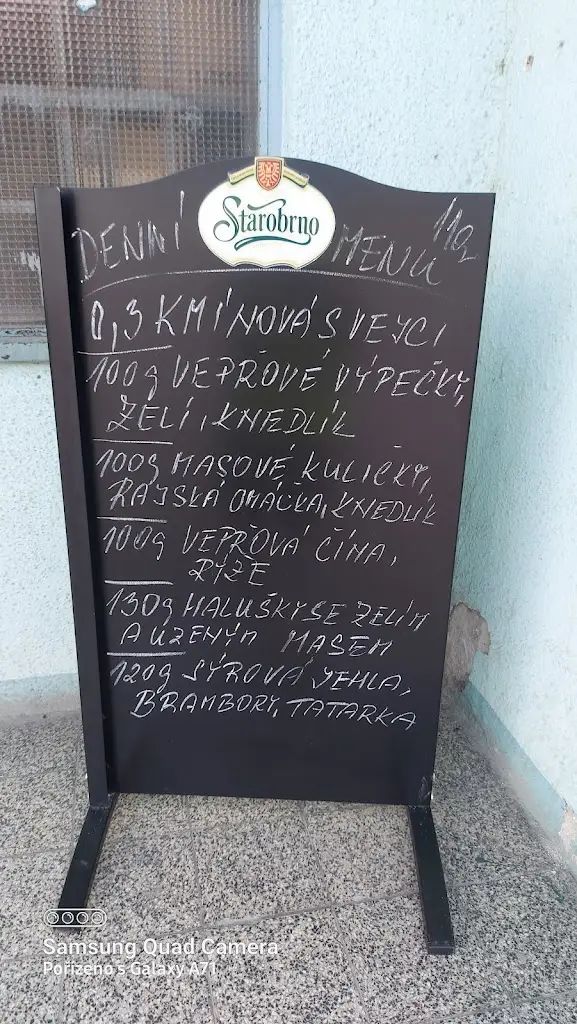 Starobrno
DENNÍ MENU
0,3 KMÍNOVÁ S VEJCI
100g VEPŘOVÉ VÝPEČKY,
ZELÍ, KNEDLÍK
100g MASOVÉ KULIČKY,
RAJSKÁ OMÁČKA, KNEDLÍK
100g VEPŘOVÁ ČÍNA,
RÝŽE
130g HALUŠKY SE ZELÍM
A UZENÝM MASEM
120g SÝROVÁ JEHLA,
BRAMBORY, TATARKA
Samsung Quad Camera
Pořízeno s Galaxy A71